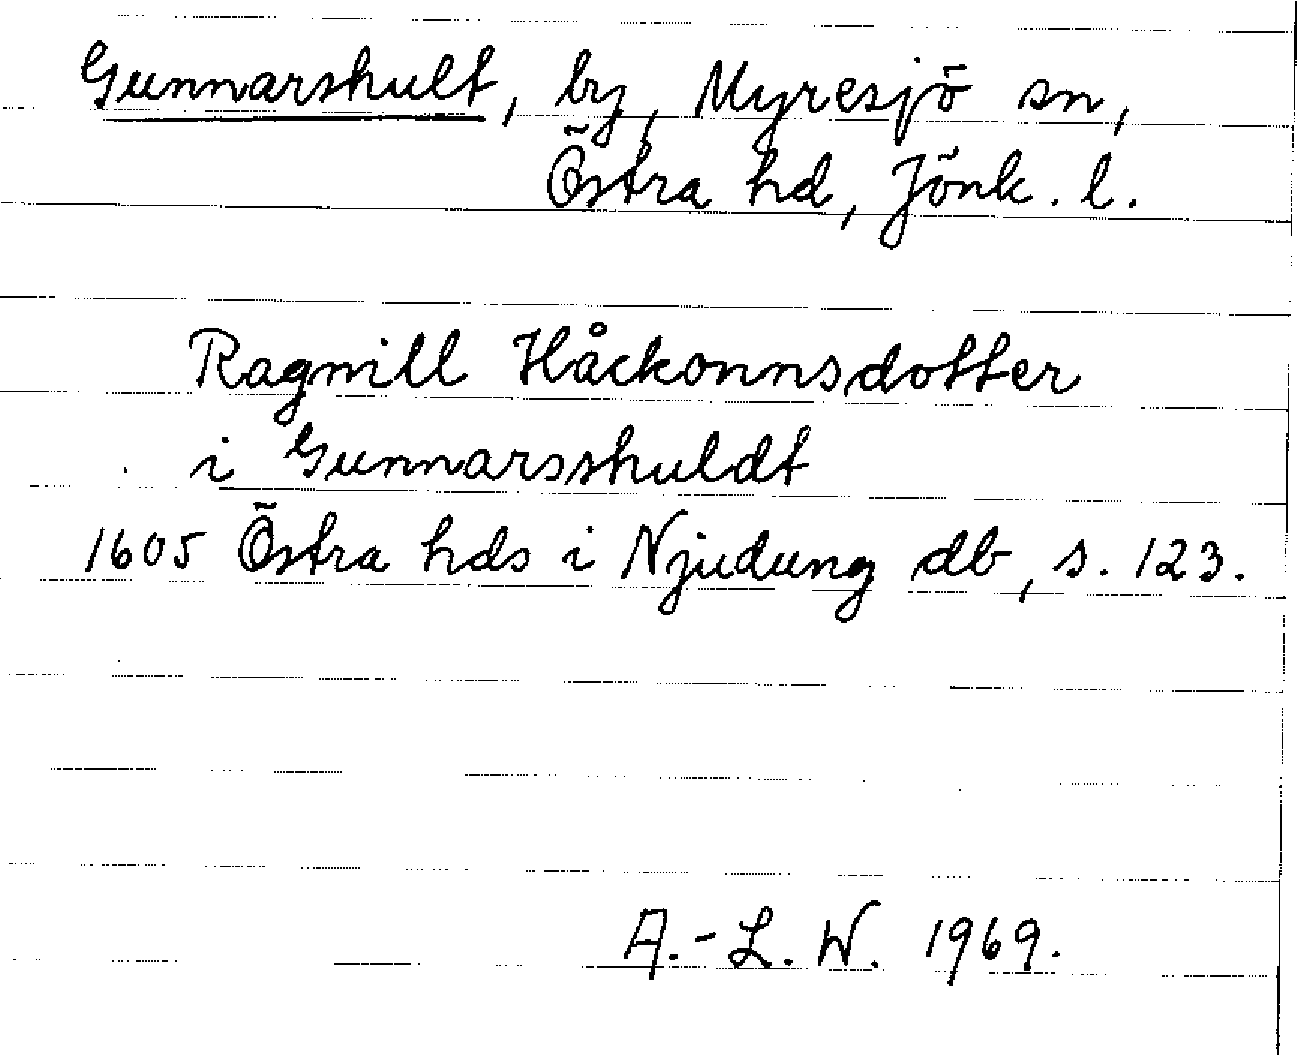 Gunnarshult, by, Myresjö sn,
Östra hd, Jönk. l.
Ragnill Håckonnsdotter
i Gunnarsshuldt
1605 Östra hds i Njudung db, s. 123.
A.-L. W. 1969.